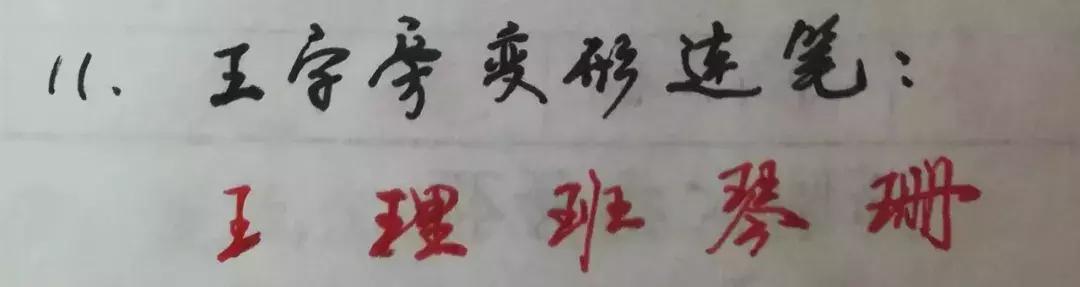 11. 王字旁变形连笔:
王 理 班 琴 珊